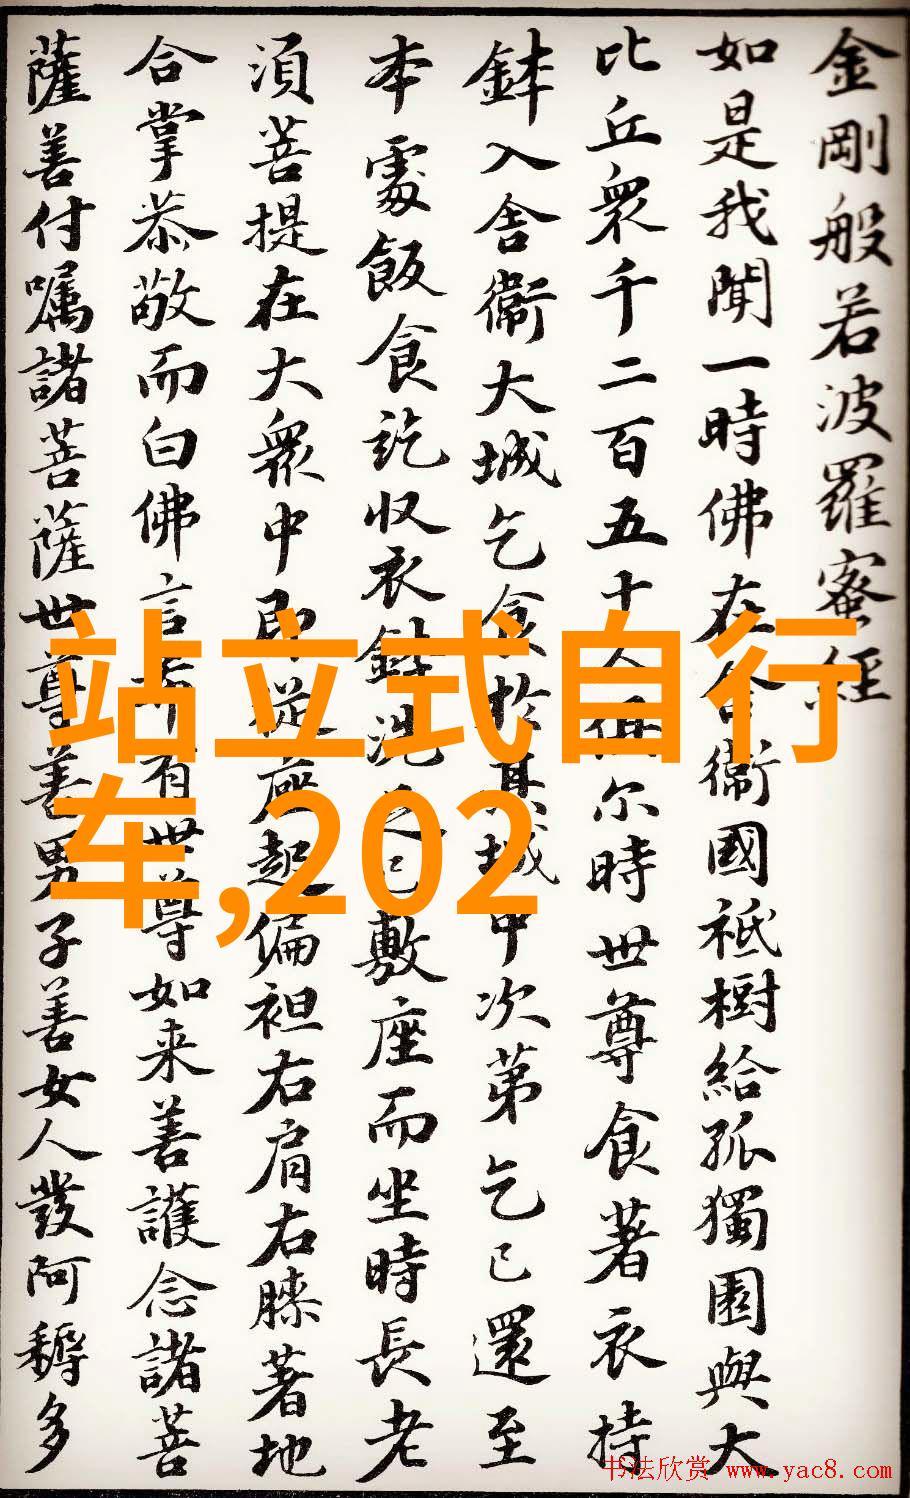 金剛般若波羅蜜經
如是我聞一時佛在舍衞國祇樹給孤獨園與大
比丘衆千二百五十人俱尔時世尊食著衣持
鉢入舎衞大城乞食於其城中次第乞已還至
本處飯食訖收衣鉢洗足已敷座而坐時長老
須菩提在大衆中即從座起偏袒右肩右膝著地
合掌恭敬而白佛言希有世尊如来善護念諸菩
薩善付嘱諸菩薩世尊善男子善女人發阿耨多
站立式自行
车,202
书法欣赏 www.yac8.com